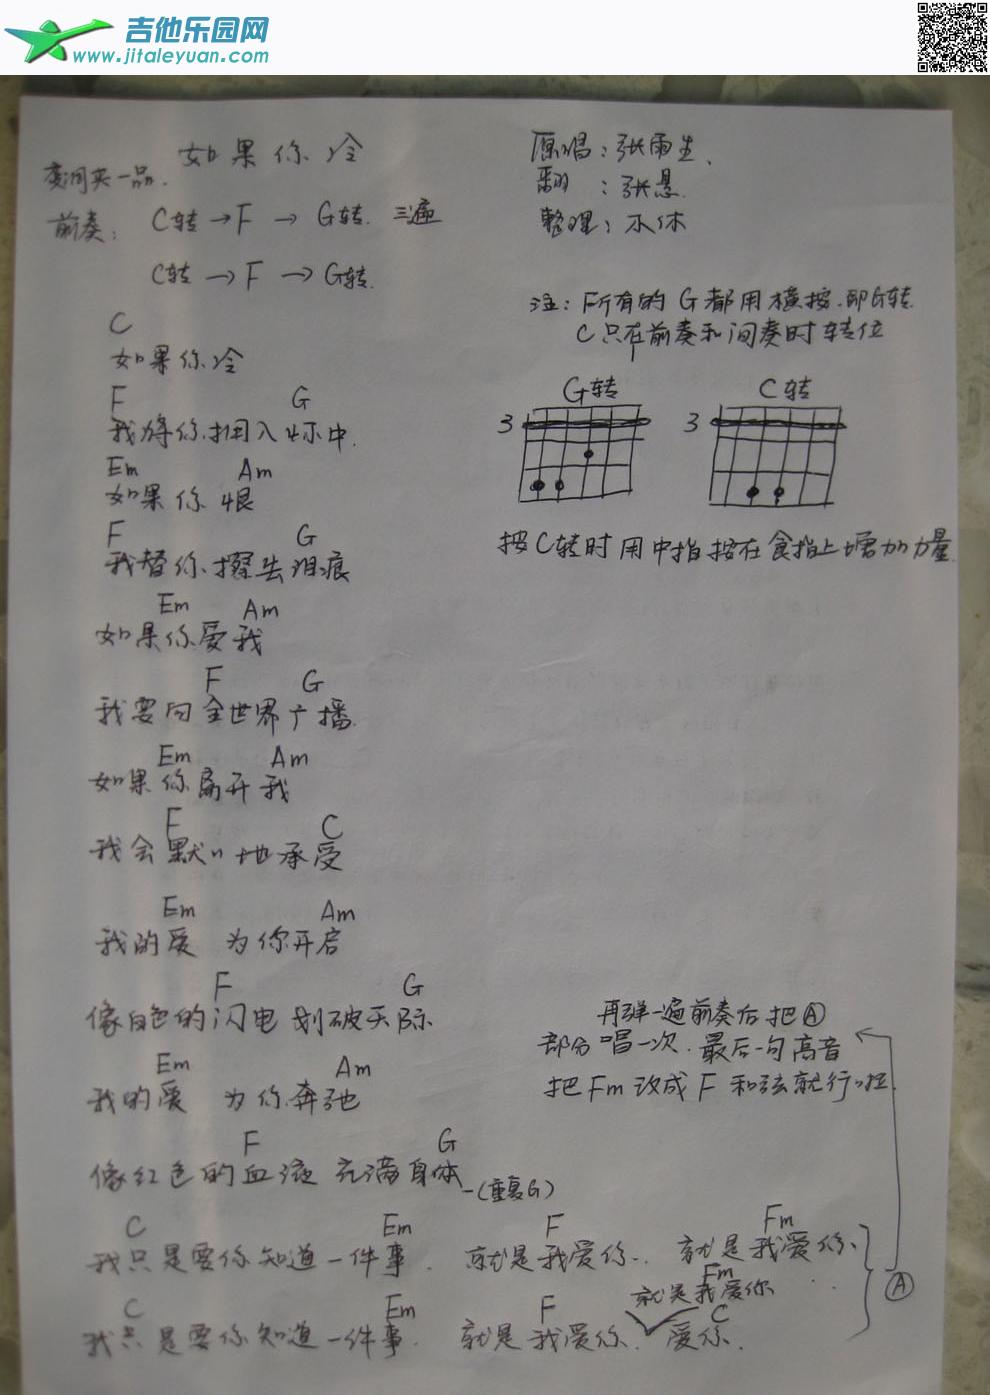 吉他乐园网
www.jitaleyuan.com
如果你冷
变调夹一品.
前奏: C转→F → G转. 三遍
C转 → F → G转.
原唱:张雨生.
翻 :张悬.
整理:木休
注:所有的G都用横按.即G转.
C只在前奏和间奏时转位
G转 C转
3 3
按C转时用中指按在食指上增加力量.
C
如果你冷
F G
我将你拥入怀中.
Em Am
如果你恨
F G
我替你擦去泪痕
Em Am
如果你爱我
F G
我要向全世界广播.
Em Am
如果你离开我
F C
我会默〃地承受
Em Am
我的爱 为你开启
F G
像白色的闪电划破天际
Em Am
我的爱 为你奔驰
F G
像红色的血液充满身体
-(重复G)
再弹一遍前奏后把Ⓐ
部分唱一次.最后一句高音
把Fm改成F和弦就行啦.
C Em F Fm
我只是要你知道一件事. 就是我爱你.. 就是我爱你.
Fm
就是我爱你
C Em F C
我只是要你知道一件事. 就是我爱你. 爱你.
Ⓐ